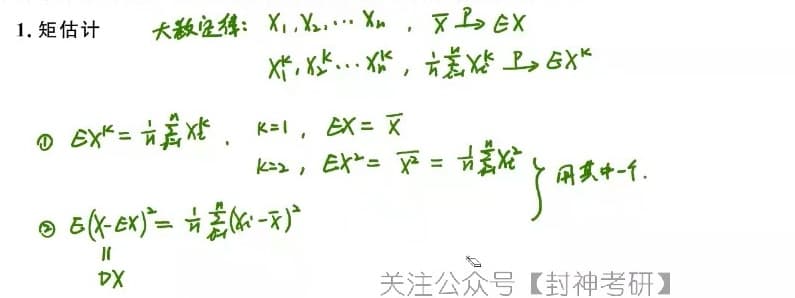 1. 矩估计 大数定律: X₁, X₂, … Xₙ , X̄ P→ EX
X₁ᵏ, X₂ᵏ … Xₙᵏ , 1/n Σᵢ₌₁ⁿ Xᵢᵏ P→ EXᵏ
① EXᵏ = 1/n Σᵢ₌₁ⁿ Xᵢᵏ . k=1 , EX = X̄
k=2 , EX² = X̄² = 1/n Σᵢ₌₁ⁿ Xᵢ² } 用其中一个.
② E(X-EX)² = 1/n Σᵢ₌₁ⁿ (Xᵢ-X̄)²
||
DX
关注公众号【封神考研】